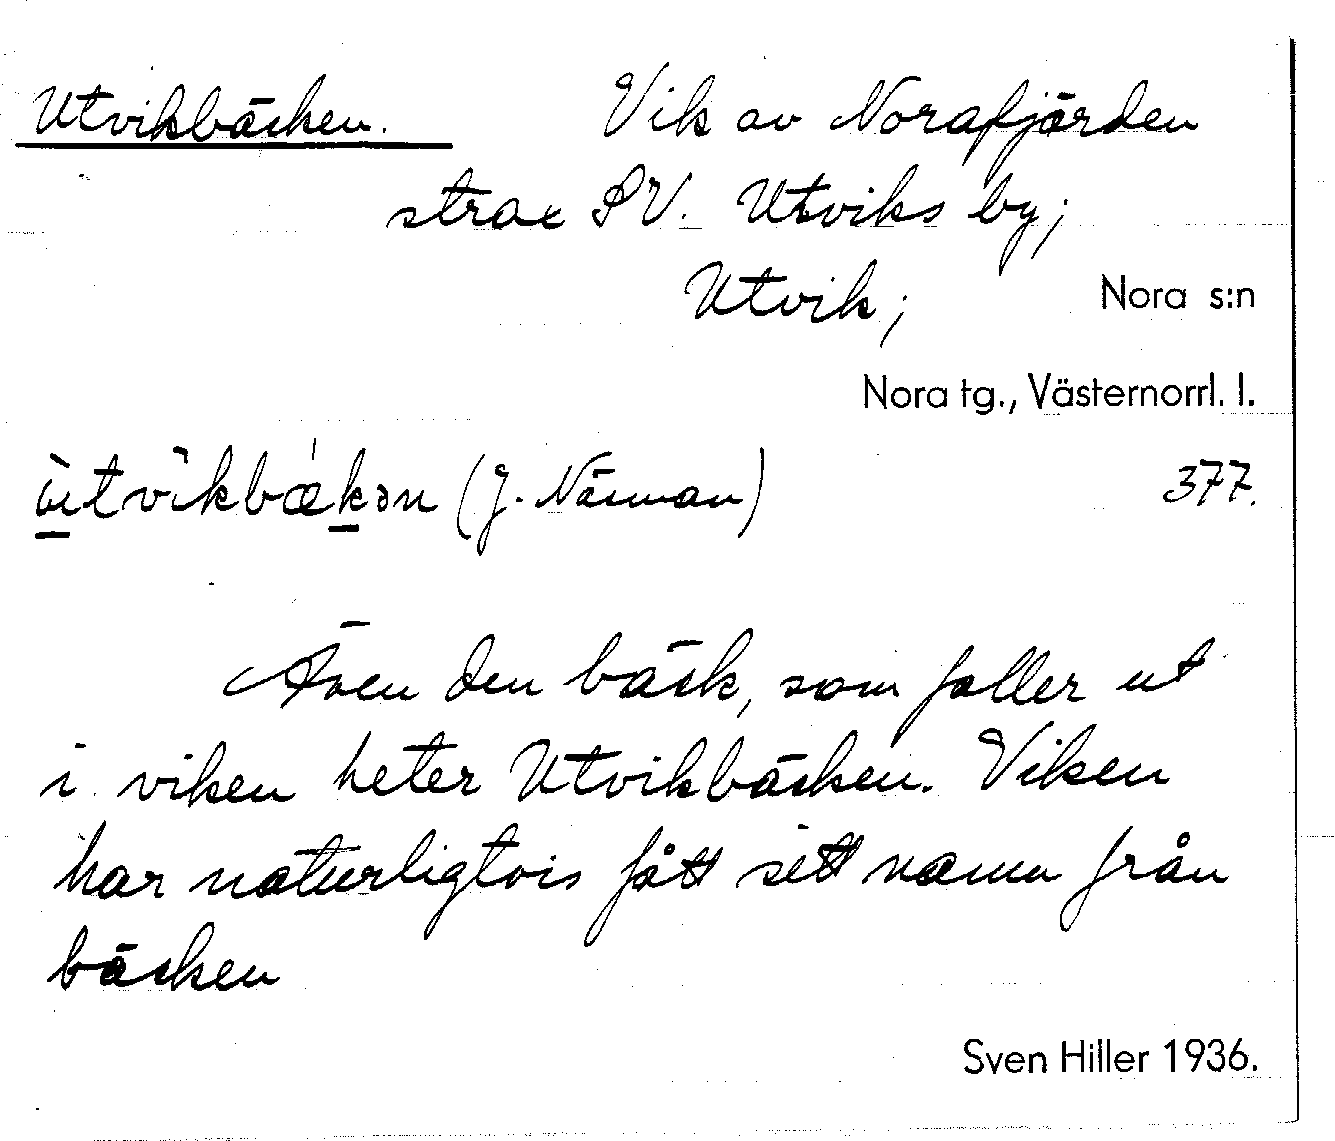 Utvikbäcken. Vik av Norafjärden
strax SV. Utviks by;
Utvik; Nora s:n
Nora tg., Västernorrl. l.
ùtvìkbǽkən (J. Näsman) 377.
Även den bäck, som faller ut
i viken heter Utvikbäcken. Viken
har naturligtvis fått sitt namn från
bäcken
Sven Hiller 1936.